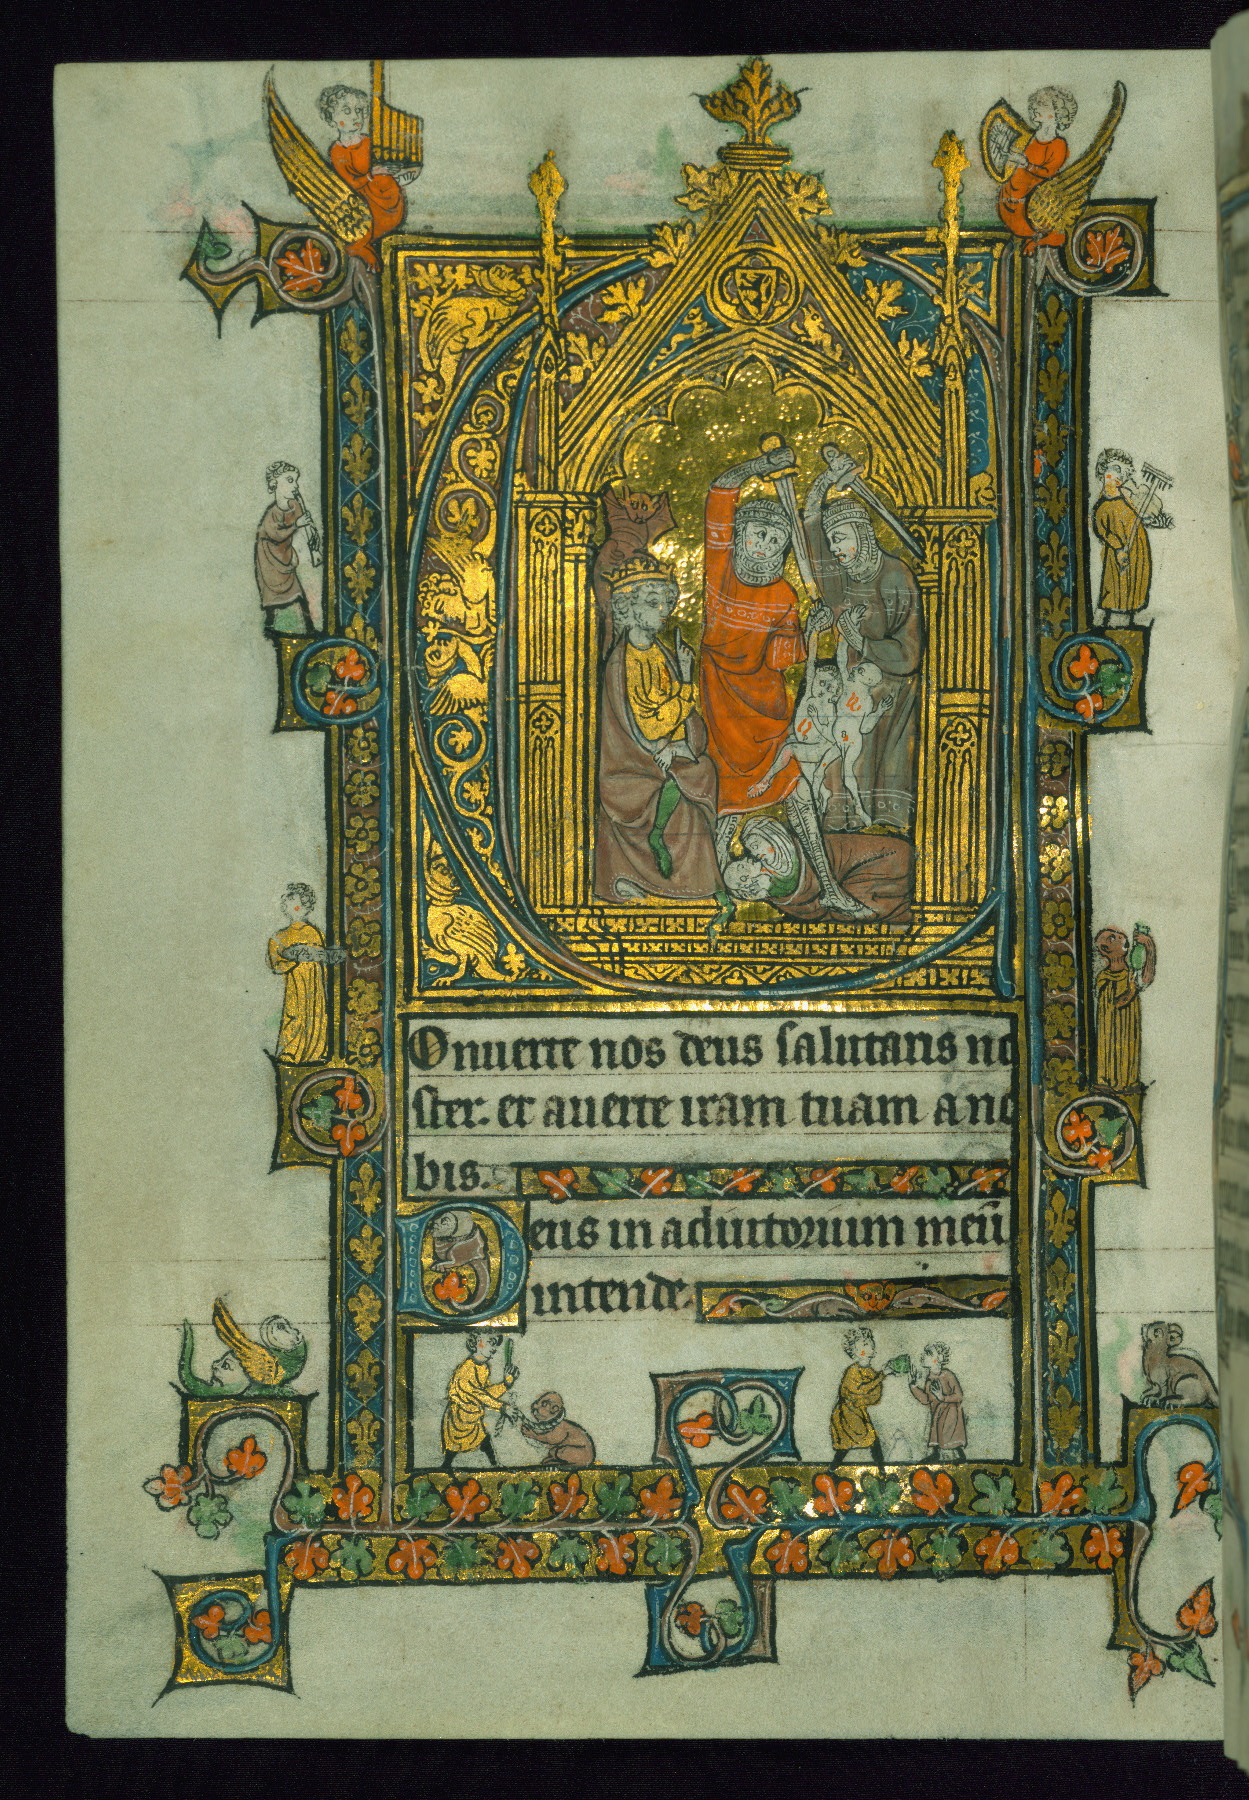 Onuerte nos deus salutaris no
ster. et auerte iram tuam a no
bis.
Deus in adiutorium meū
intende.